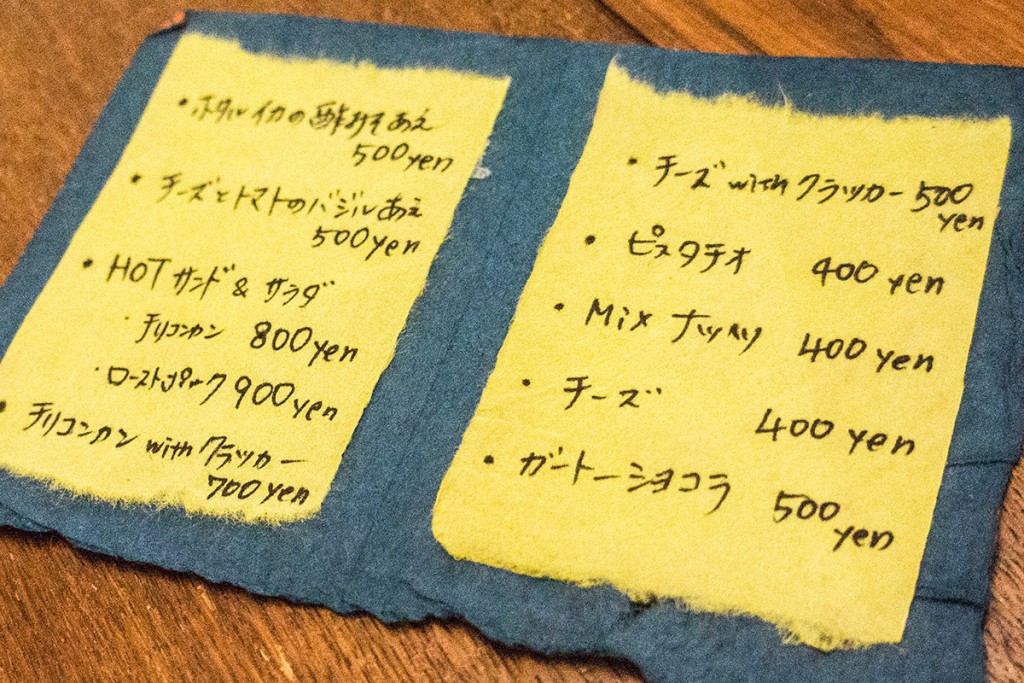 ・ホタルイカの酢みそあえ
500yen
・チーズとトマトのバジルあえ
500yen
・HOTサンド&サラダ
・チリコンカン 800yen
・ローストポーク 900yen
・チリコンカン withクラッカー
700yen
・チーズ withクラッカー 500
yen
・ピスタチオ 400 yen
・Mix ナッツ 400 yen
・チーズ
400 yen
・ガートーショコラ 500
yen